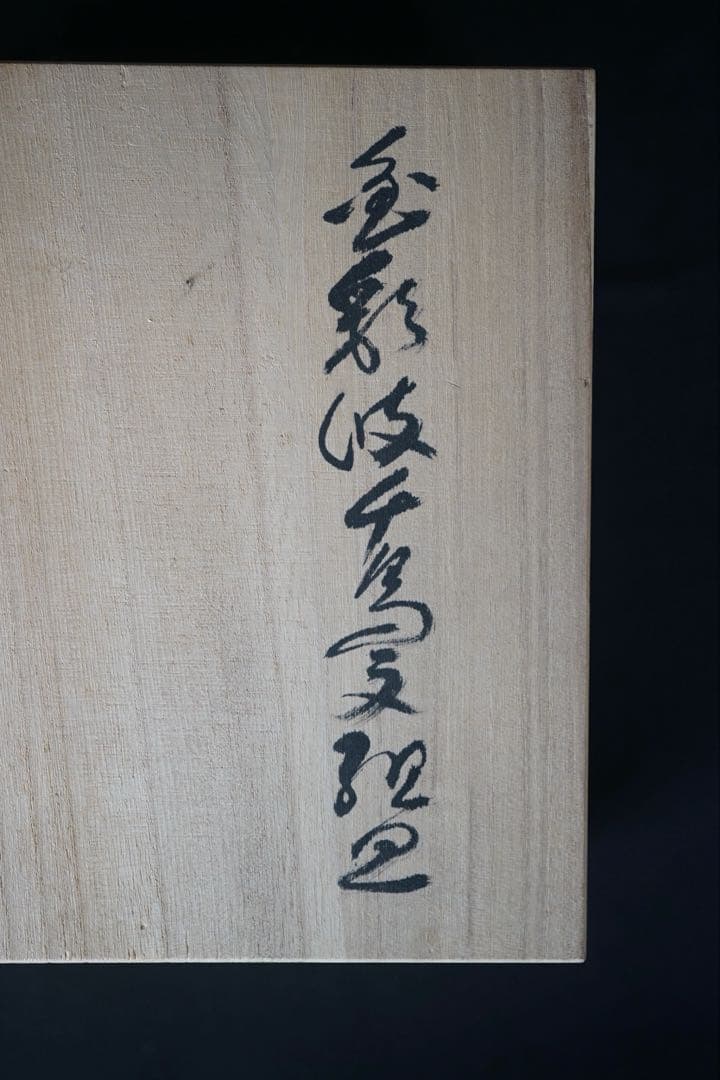 金彩波千鳥文組皿